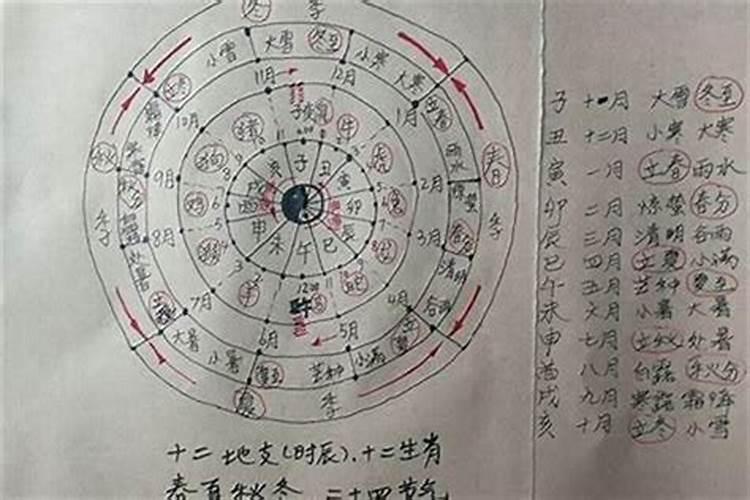 冬 季
小雪 大雪 冬至 小寒 大寒
立冬 立春
11月 12月
10月 1月
子 丑 寅 卯 辰 巳 午 未 申 酉 戌 亥
秋 季
春 季
9月 2月
8月 3月
7月 4月
6月 5月
秋分 雨水 惊蛰 春分 清明 谷雨
处暑 大暑 小暑 夏至 芒种 小满
猪 牛 虎 兔 鸡 狗 猴 羊
夏 季
子 十一月 大雪 冬至
丑 十二月 小寒 大寒
寅 一月 立春 雨水
卯 二月 惊蛰 春分
辰 三月 清明 谷雨
巳 四月 立夏 小满
午 五月 芒种 夏至
未 六月 小暑 大暑
申 七月 立秋 处暑
酉 八月 白露 秋分
戌 九月 寒露 霜降
亥 十月 立冬 小雪
十二地支(时辰)、十二生肖
春夏秋冬 二十四节气